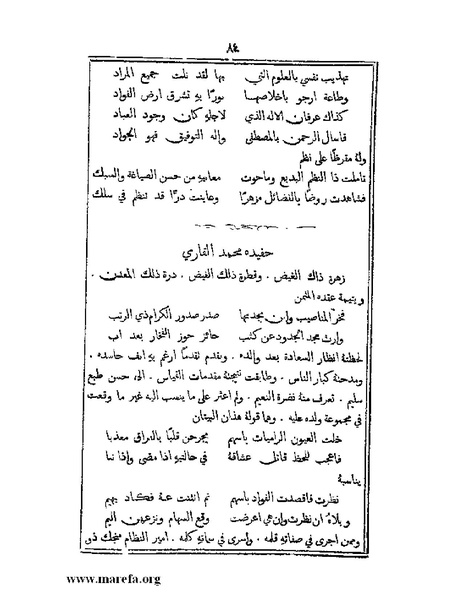 ٨٤
تهذيب نفسي بالعلوم التي بها لقد نلت جميع المراد
وطاعة ارجو باخلاصها نورًا بهِ تشرق ارض الفواد
كذاك عرفان الاله الذي لاجلهِ كان وجود العباد
فاسال الرحمن بالمصطفى واله التوفيق فهو الجواد
ولهُ مقرظًا على نظم
تاملت ذا النظم البديع وما حوت معانيهِ من حسن الصياغة والسبك
فشاهدت روضًا بالفضائل مزهرًا وعاينت درًا قد تنظم في سلك
حفيده محمد القاري
زهرة ذاك الغيض . وقطرة ذلك الفيض . درة ذلك المعدن .
ويتيمة عقده المثمن
فخر المناصب وابن بجدتها صدر صدور الكرام ذي الرتب
وارث مجد الجدود عن كثب حائز حوز الفخار بعد اب
لحظتهُ انظار السعادة بعد والده . وتقدم تقدمًا ارغم بهِ انف حاسده .
ومدحتهُ كبار الناس . وطابقت نتيجتهُ مقدمات القياس . الى حسن طبع
سليم . تعرف منهُ نضرة النعيم . ولم اعثر على ما ينسب اليهِ غير ما وقعت
في مجموعة ولده عليه . وهما قولهُ هذان البيتان
خلت العيون الراميات باسهم يجرحن قلبًا بالفراق معذبا
فاعجب للحظ قاتل عشاقهُ في حالتيهِ اذا مضى واذا نبا
يناسبهُ
نظرت فاقصدت الفواد باسهم ثم انثنت عنهُ فكاد يهيم
ويلاهُ ان نظرت وان هي اعرضت وقع السهام ونزعهن اليم
وممن اجرى في صفاتهِ قلمه . واسرى في سماتهِ كلمه . امير النظام منجك ذو
www.marefa.org